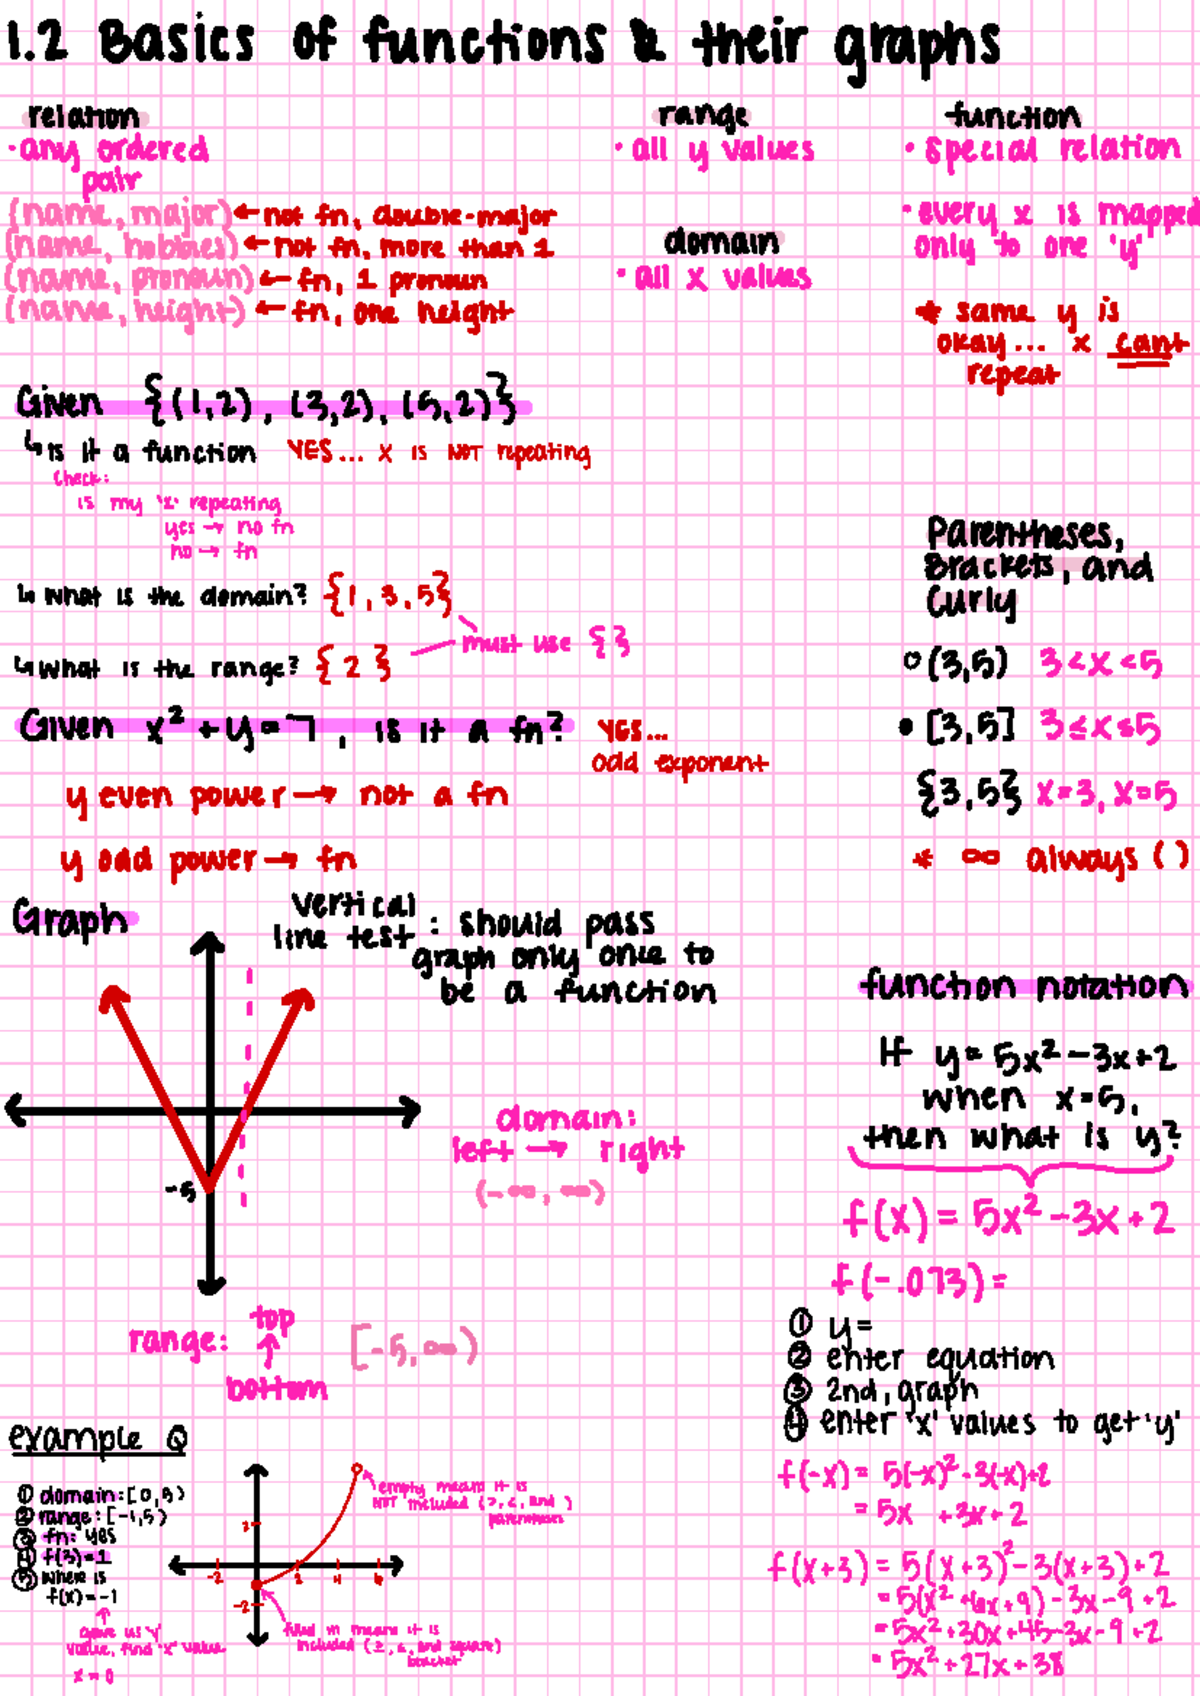 1.2 Basics of functions & their graphs
relation
• any ordered
pair
(name, major) ← not fn, double-major
(name, hobbies) ← not fn, more than 1
(name, pronoun) ← fn, 1 pronoun
(name, height) ← fn, one height
range
• all y values
domain
• all x values
function
• special relation
• every x is mapped
only to one 'y'
* same y is
okay... x cant
repeat
Given {(1,2), (3,2), (5,2)}
↳ is it a function YES... x is NOT repeating
Check:
is my 'x' repeating
yes → no fn
no → fn
↳ What is the domain? {1, 3, 5}
must use { }
↳ What is the range? { 2 }
Given x² + y = 7, is it a fn? YES...
odd exponent
y even power → not a fn
y odd power → fn
Parentheses,
Brackets, and
Curly
○ (3,5) 3<x<5
● [3,5] 3≤x≤5
{3,5} x=3, x=5
* ∞ always ( )
Graph
vertical
line test : should pass
graph only once to
be a function
-5
domain:
left → right
(-∞, ∞)
range:
top
↑
bottom
[-5, ∞)
function notation
If y = 5x² - 3x + 2
when x=5,
then what is y?
f(x) = 5x² - 3x + 2
f(-.073) =
① y=
② enter equation
③ 2nd, graph
④ enter 'x' values to get 'y'
f(-x) = 5(-x)² - 3(-x)+2
= 5x + 3x + 2
f(x+3) = 5(x+3)² - 3(x+3) + 2
= 5(x² + 6x + 9) - 3x - 9 + 2
= 5x² + 30x + 45 - 3x - 9 + 2
= 5x² + 27x + 38
example Q
① domain: [0,5)
② range: [-1,5)
③ fn: yes
④ f(3)=1
⑤ where is
f(x) = -1
gave us 'y'
value, find 'x' value
x = 0
-2 2 4 6
2
-2
empty means it is
NOT included (>, <, and )
parentheses
filled in means it is
included (≥, ≤, and square)
bracket